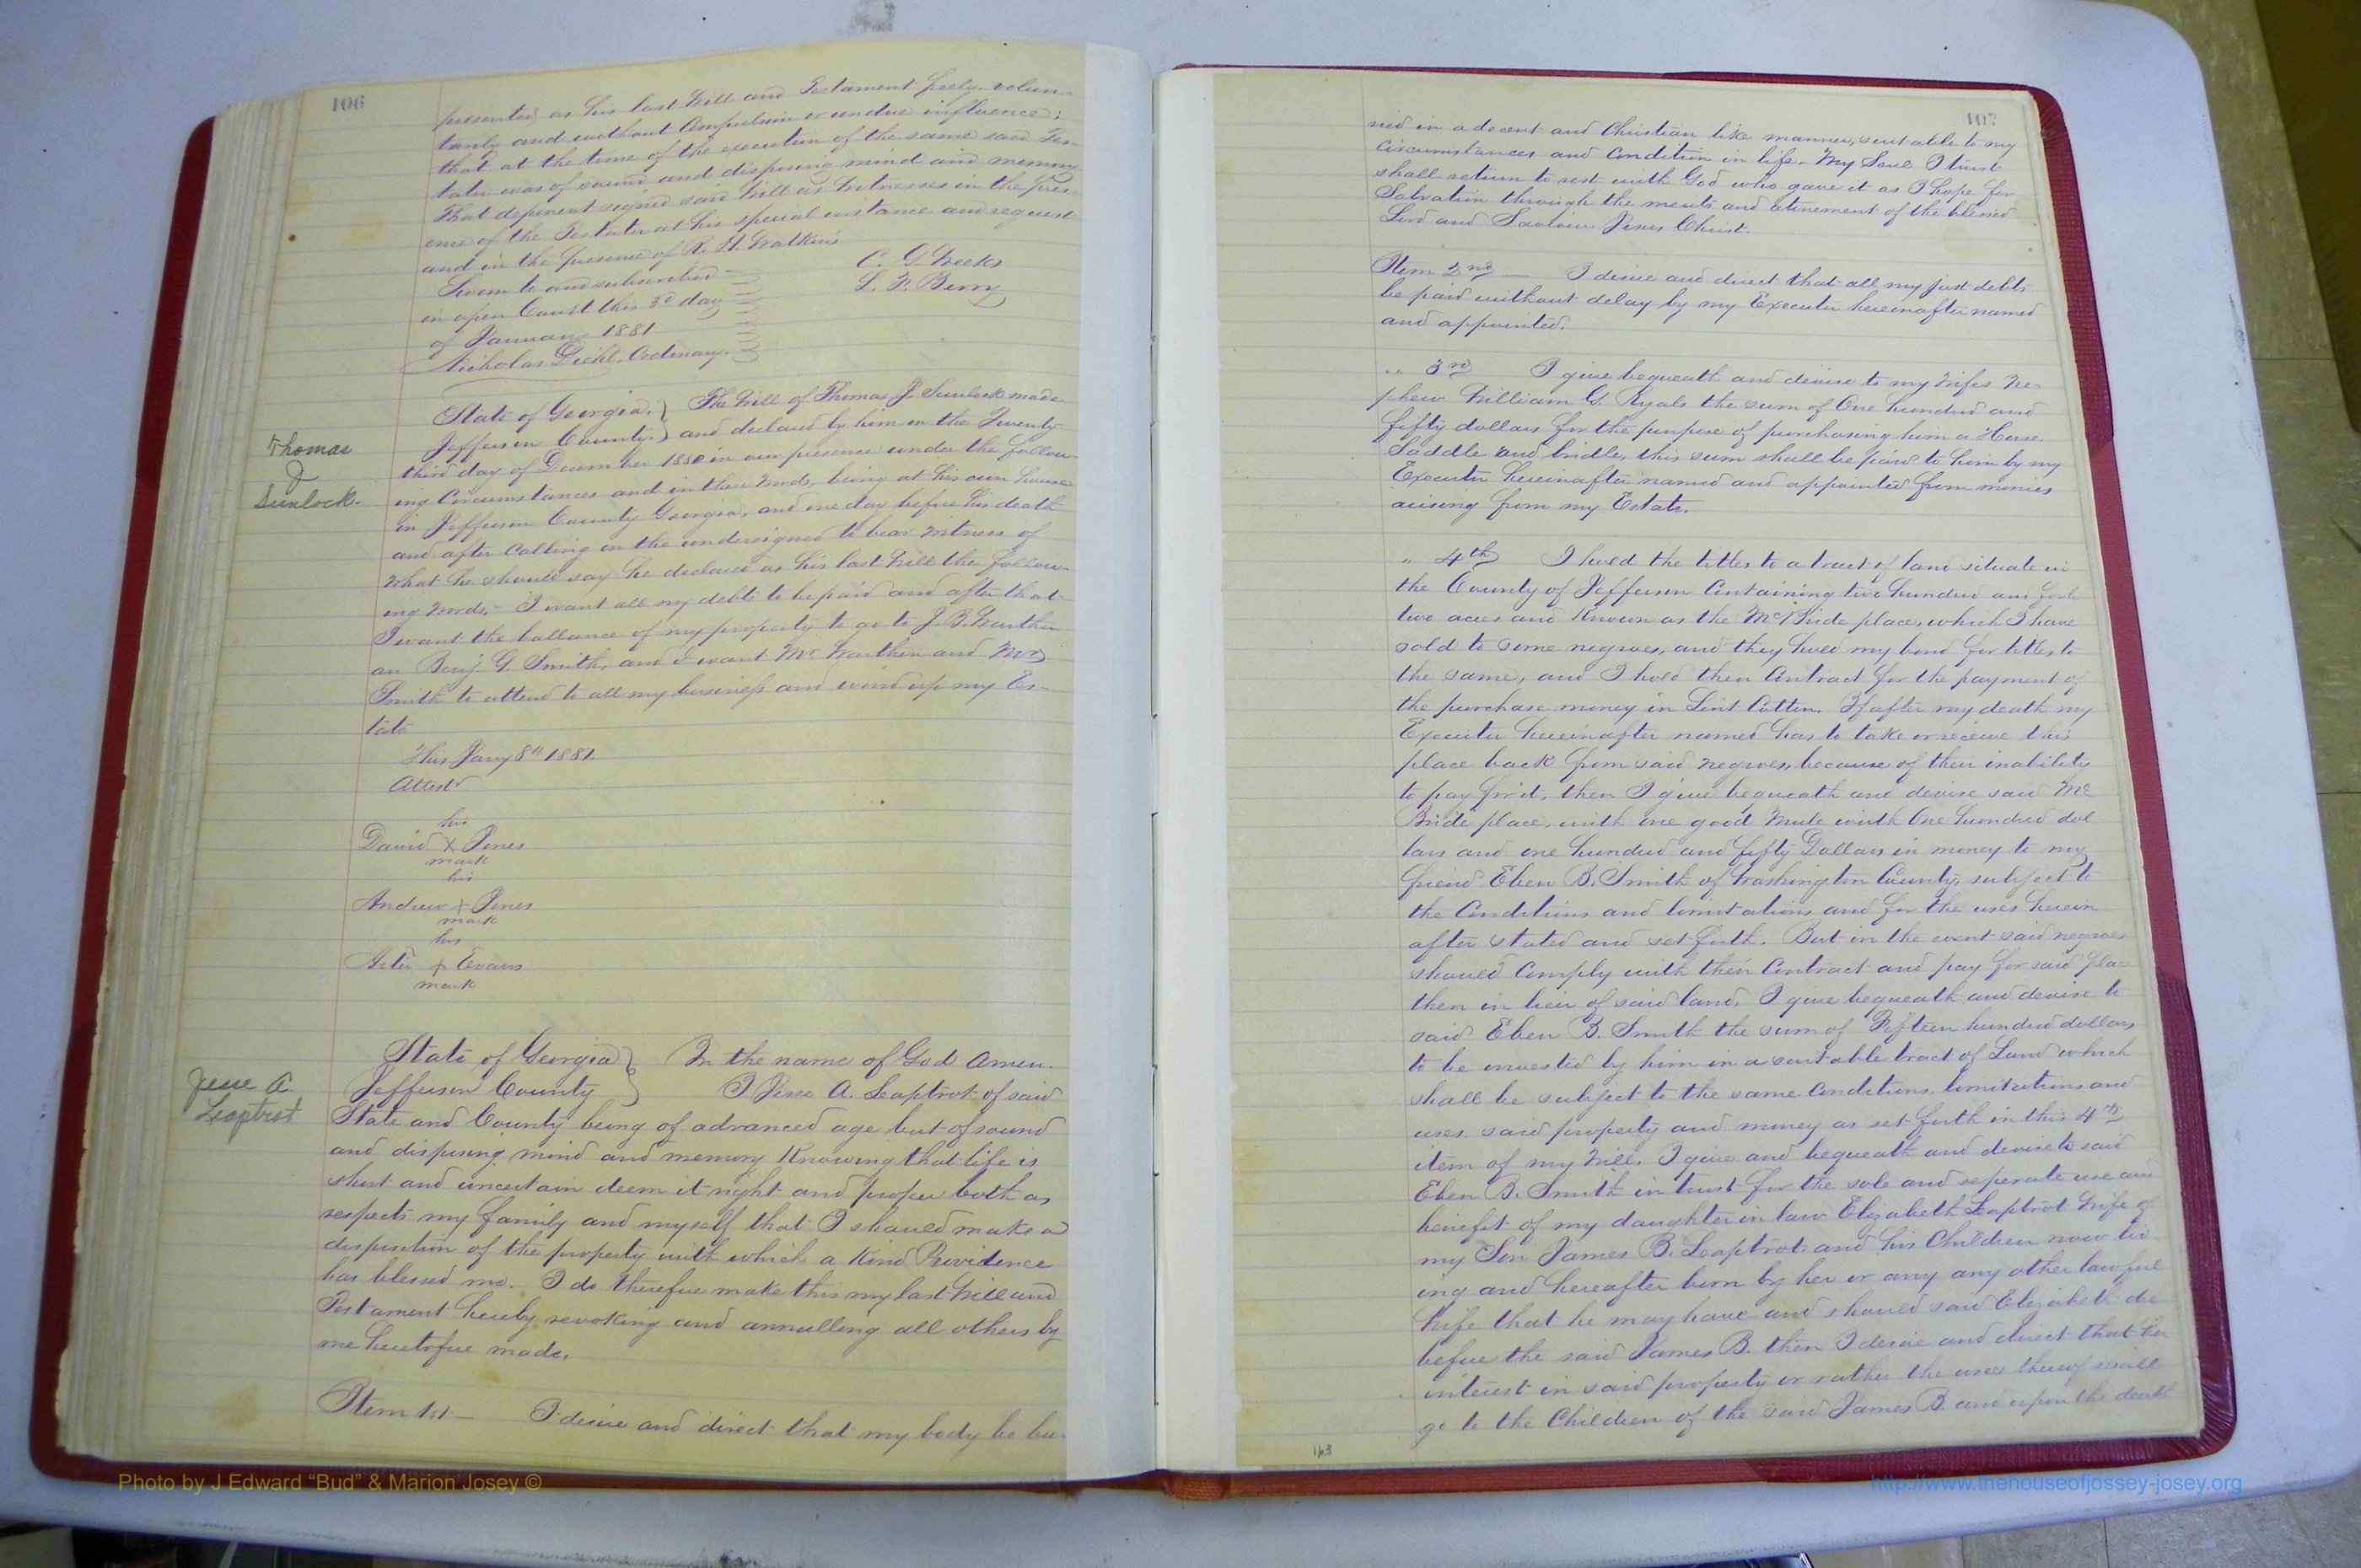 106
presented as his last Will and Testament freely volun-
tarily and without Compulsion or undue influence;
that at the time of the execution of the same said Tes-
tator was of sound and disposing mind and memory
That deponent signed said Will as Witnesses in the pres-
ence of the Testator at his special instance and request
and in the presence of R. H. Watkins
Sworn to and subscribed
C. G. Weeks
in open Court this 3d day
L. F. Berry
of January 1881
Nicholas Diehl, Ordinary.
State of Georgia, } The Will of Thomas J. made
Jefferson County. } and declared by him on the Twenty
Thomas
J
third day of December 1880 in our presence under the follow-
ing Circumstances and in these Words, being at his own house
in Jefferson County Georgia, and one day before his death
and after Calling on the undersigned to bear Witness of
What he should say he declared as his last Will the follow-
ing Words,- I want all my debts to be paid and after that
I want the ballance of my property to go to J. B. Warthen
an Benj. G. Smith, and I want Mr. Warthen and Mr
Smith to attend to all my business and wind up my Es-
tate
This Jany 8th 1881.
Attest
his
David X Jones
mark
his
Andrew + Jones
mark
his
+ Evans
mark
State of Georgia } In the name of God Amen.
Jefferson County } I Jesse A. Leaptrot of said
Jesse A.
Leaptrot
State and County being of advanced age but of sound
and disposing mind and memory Knowing that life is
short and uncertain deem it right and proper both as
respects my family and myself that I should make a
disposition of the property with which a Kind Providence
has blessed me. I do therefore make this my last Will and
Testament hereby revoking and annulling all others by
me heretofore made.
Item 1st — I desire and direct that my body be bu-
107
ried in a decent and Christian like manner, suitable to my
circumstances and Condition in life. My Soul I trust
shall return to rest with God who gave it as I hope for
Salvation through the merits and atonement of the blessed
Lord and Saviour Jesus Christ.
Item 2nd — I desire and direct that all my just debts
be paid without delay by my Executor hereinafter named
and appointed.
" 3rd I give bequeath and devise to my Wifes Ne-
phew William G. Ryals the sum of One hundred and
fifty dollars for the purpose of purchasing him a Horse
Saddle and bridle, this sum shall be paid to him by my
Executor hereinafter named and appointed from monies
arising from my Estate.
" 4th I hold the titles to a tract of land situate in
the County of Jefferson Containing two hundred and forty
two acres and Known as the McBride place, which I have
sold to some negroes, and they hold my bond for titles to
the same, and I hold their Contract for the payment of
the purchase money in Lint Cotton. If after my death my
Executor hereinafter named has to take or receive this
place back from said negroes, because of their inability
to pay for it, then I give bequeath and devise said Mc
Bride place, with one good Mule worth One hundred dol
lars and one hundred and fifty Dollars in money to my
friend Eben B. Smith of Washington County, subject to
the Conditions and limitations and for the uses herein
after stated and set forth. But in the event said negroes
should Comply with their Contract and pay for said pla-
then in lieu of said land, I give bequeath and devise to
said Eben B. Smith the sum of Fifteen hundred dollars
to be invested by him in a suitable tract of Land which
shall be subject to the same Conditions limitations and
uses. said property and money as set forth in this 4th
item of my Will. I give and bequeath and devise to said
Eben B. Smith in trust for the sole and seperate use and
benefit of my daughter in law Elizabeth Leaptrot Wife of
my Son James B. Leaptrot and his Children now liv-
ing and hereafter born by her or any any other lawful
Wife that he may have and should said Elizabeth die
before the said James B. then I desire and direct that her
interest in said property or rather the uses thereof shall
go to the Children of the said James B. and upon the death
163
Photo by J Edward “Bud” & Marion Josey ©
http://www.thehouseofjossey-josey.org